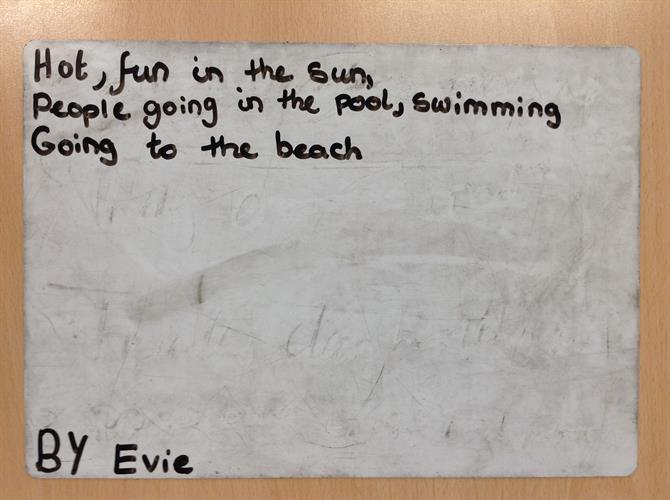 Hot, fun in the sun,
People going in the pool, swimming
Going to the beach
BY Evie